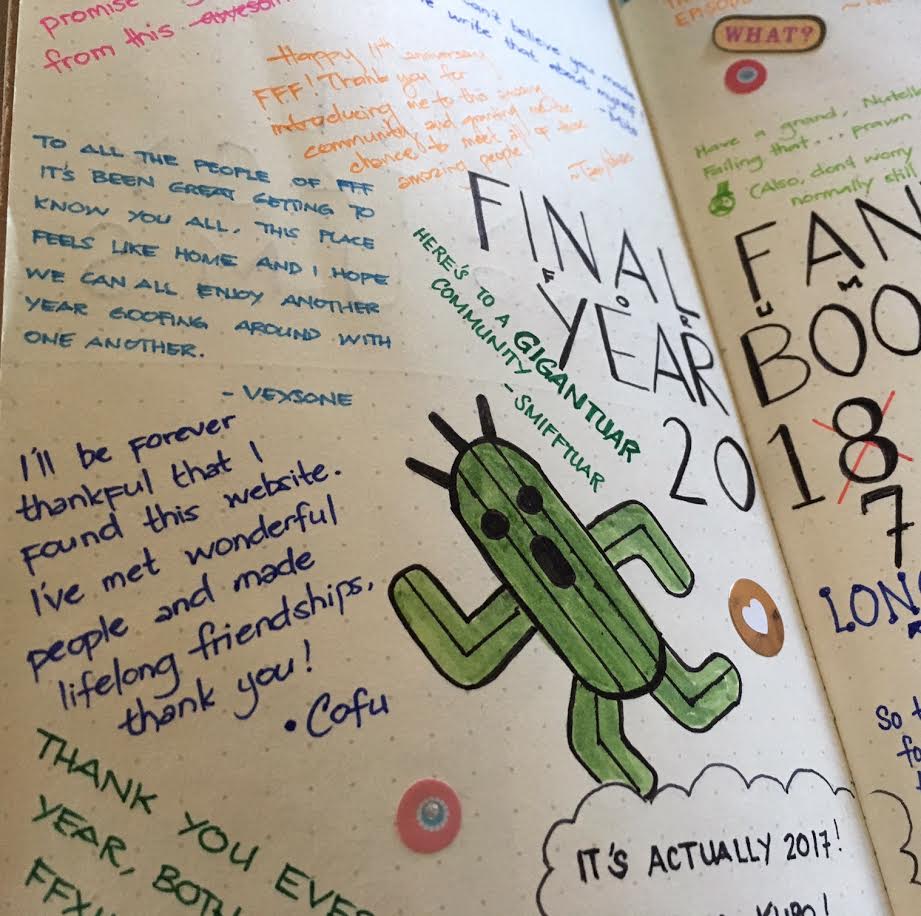 promise
from this awesom
can't believe you made
me write that about myself!
Happy 11th anniversary
FFF! Thank you for
introducing me to this insane
community and granting me the
chance! to meet all of these
amazing people
TO ALL THE PEOPLE OF FFF
IT'S BEEN GREAT GETTING TO
KNOW YOU ALL. THIS PLACE
FEELS LIKE HOME AND I HOPE
WE CAN ALL ENJOY ANOTHER
YEAR GOOFING AROUND WITH
ONE ANOTHER.
- VEXSONE
HERE'S TO A GIGANTUAR
COMMUNITY - SMIFFTUAR
I'll be forever
thankful that I
found this website.
I've met wonderful
people and made
lifelong friendships,
thank you!
• Cofu
THANK YOU EVE
YEAR, BOTH
FFXI
FINAL
YEAR
20
IT'S ACTUALLY 2017!
KUPO!
EPISODE
WHAT?
Have a grand, Nutella
Failing that... prawn
(Also, dond worry
normally still
FAN
BOO
18
7
LON
So t
fo